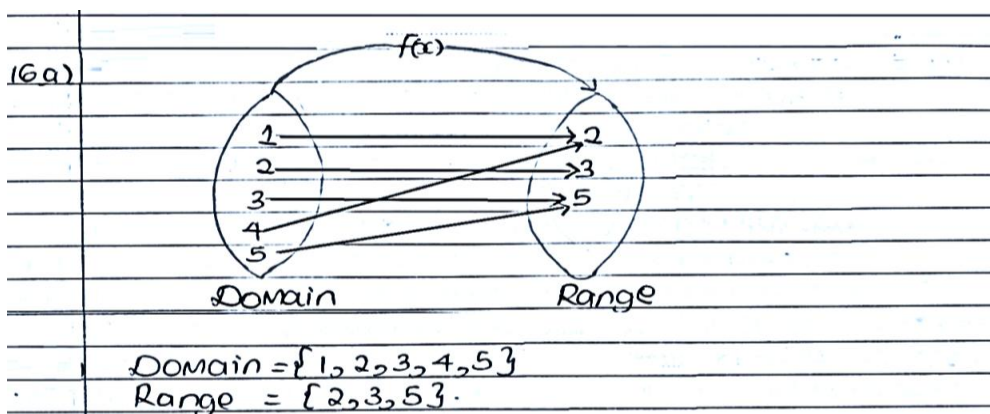 f(x)
16a)
1 2
2 3
3 5
4
5
Domain Range
Domain = {1, 2, 3, 4, 5}
Range = {2, 3, 5}.